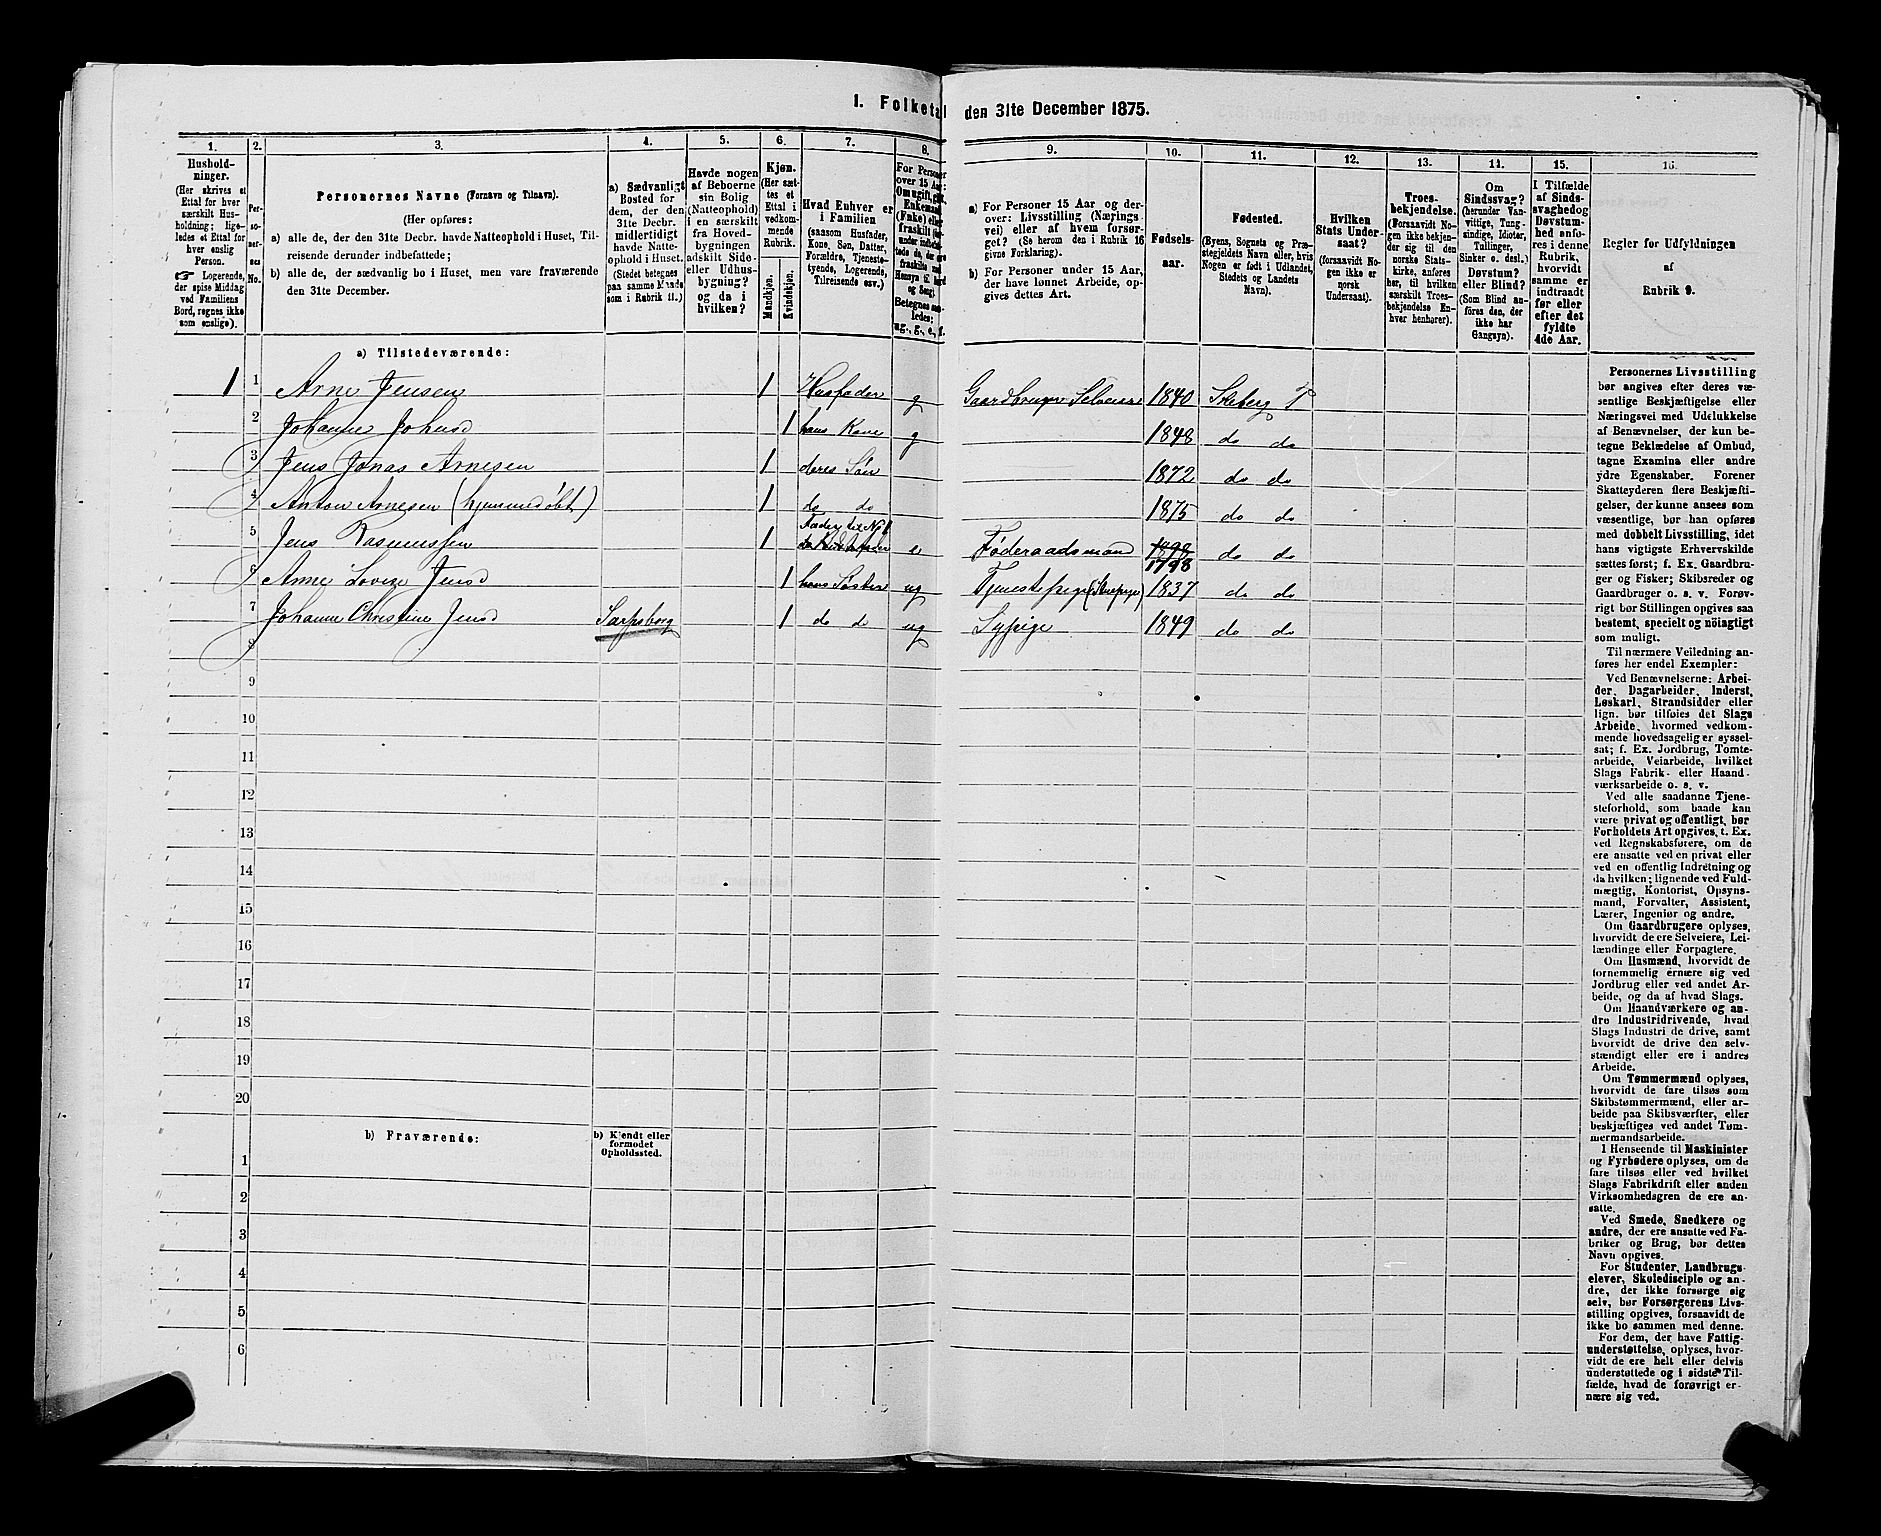 1. Folketal den 31te December 1875.
1.
Hushold-
ninger.
(Her skrives et
Ettal for hver
særskilt Hus-
holdning; lige-
ledes et Ettal for
hver enslig
Person.
☞ Logerende,
der spise Middag
ved Familiens
Bord, regnes ikke
som enslige).
2.
Per-
so-
ner-
nes
No.
3.
Personernes Navne (Fornavn og Tilnavn).
(Her opføres:
a) alle de, der den 31te Decbr. havde Natteophold i Huset, Til-
reisende derunder indbefattede;
b) alle de, der sædvanlig bo i Huset, men vare fraværende
den 31te December.
4.
a) Sædvanligt
Bosted for
dem, der den
31te Decbr.
midlertidigt
havde Natte-
ophold i Huset.
(Stedet betegnes
paa samme Maade
som i Rubrik 11.)
5.
Havde nogen
af Beboerne
sin Bolig
(Natteophold)
i en særskilt
fra Hoved-
bygningen
adskilt Side-
eller Udhus-
bygning?
og da i
hvilken?
6.
Kjøn.
(Her sæt-
tes et
Ettal i
vedkom-
mende
Rubrik.
Mandkjøn.
Kvindekjøn.
7.
Hvad Enhver er
i Familien
(saasom Husfader,
Kone, Søn, Datter,
Forældre, Tjeneste-
tyende, Logerende,
Tilreisende osv.)
8.
For Personer
over 15 Aar:
Om ugift, gift,
Enkemand
(Enke) eller
fraskilt
Betegnes saa-
ledes:
ug., g., e., f.
9.
a) For Personer 15 Aar og der-
over: Livsstilling (Nærings-
vei) eller af hvem forsør-
get? (Se herom den i Rubrik 16
givne Forklaring).
b) For Personer under 15 Aar,
der have lønnet Arbeide, op-
gives dettes Art.
10.
Fødsels-
aar.
11.
Fødested.
(Byens, Sognets og Præ-
stegjeldets Navn eller, hvis
Nogen er født i Udlandet,
Stedets og Landets
Navn).
12.
Hvilken
Stats Under-
saat?
(forsaavidt No-
gen ikke er
norsk
Undersaat).
13.
Troes-
bekjendelse.
(Forsaavidt No-
gen ikke bekjen-
der sig til den
norske Stats-
kirke, anføres
her, til hvilken
særskilt Troes-
bekjendelse En-
hver henhører).
14.
Om
Sindssvag?
(herunder Van-
vittige, Tung-
sindige, Idioter,
Tullinger,
Sinker o. desl.)
Døvstum?
eller Blind?
(Som Blind an-
føres den, der
ikke har
Gangsyn).
15.
I Tilfælde
af Sinds-
svaghed og
Døvstum-
hed anfø-
res i denne
Rubrik,
hvorvidt
samme er
indtraadt
før eller
efter det
fyldte
4de Aar.
16.
Regler for Udfyldningen
af
Rubrik 9.
a) Tilstedeværende:
1 1 Arne Jensen 1 Husfader g Gaardbruger Selveier 1840 Skeberg
2 Johanne Johnsd 1 hans Kone g 1848 do do
3 Jens Jonas Arnesen 1 deres Søn 1872 do do
4 Anton Arnesen (hjemmedøbt) 1 do do 1875 do do
5 Jens Rasmussen 1 Fader til No 1 e Føderaadsmand 1798 do do
6 Anne Lovise Jensd 1 hans Søster ug Tjenestepige 1837 do do
7 Johanne Christine Jensd Sarpsborg 1 do d ug Sypige 1849 do do
8
9
10
11
12
13
14
15
16
17
18
19
20
b) Fraværende:
b) Kjendt eller
formodet
Opholdssted.
1
2
3
4
5
6
Personernes Livsstilling
bør angives efter deres væ-
sentlige Beskjæftigelse eller
Næringsvei med Udelukkelse
af Benævnelser, der kun be-
tegne Beklædelse af Ombud,
tagne Examina eller andre
ydre Egenskaber. Forener
Skatteyderen flere Beskjæfti-
gelser, der kunne ansees som
væsentlige, bør han opføres
med dobbelt Livsstilling, idet
hans vigtigste Erhvervskilde
sættes først; f. Ex. Gaardbru-
ger og Fisker; Skibsreder og
Gaardbruger o. s. v. Forøv-
rigt bør Stillingen opgives saa
bestemt, specielt og nöiagtigt
som muligt.
Til nærmere Veiledning an-
føres her endel Exempler:
Ved Benævnelserne: Arbei-
der, Dagarbeider, Inderst,
Løskarl, Strandsidder eller
lign. bør tilføies det Slags
Arbeide, hvormed vedkom-
mende hovedsagelig er syssel-
sat; f. Ex. Jordbrug, Tomte-
arbeide, Veiarbeide, hvilket
Slags Fabrik- eller Haand-
værksarbeide o. s. v.
Ved alle saadanne Tjene-
steforhold, som baade kan
være privat og offentligt, bør
Forholdets Art opgives, t. Ex.
ved Regnskabsførere, om de
ere ansatte ved en privat eller
ved en offentlig Indretning og
da hvilken; lignende ved Fuld-
mægtig, Kontorist, Opsyns-
mand, Forvalter, Assistent,
Lærer, Ingeniør og andre.
Om Gaardbrugere oplyses,
hvorvidt de ere Selveiere, Lei-
lændinge eller Forpagtere.
Om Husmænd, hvorvidt de
fornemmelig ernære sig ved
Jordbrug eller ved andet Ar-
beide, og da af hvad Slags.
Om Haandværkere og an-
dre Industridrivende, hvad
Slags Industri de drive, samt
hvorvidt de drive den selv-
stændigt eller ere i andres
Arbeide.
Om Tømmermænd oplyses,
hvorvidt de fare tilsøs som
Skibstømmermænd, eller ar-
beide paa Skibsværfter, eller
beskjæftiges ved andet Tøm-
mermandsarbeide.
I Henseende til Maskinister
og Fyrbødere oplyses, om de
fare tilsøs eller ved hvilket
Slags Fabrikdrift eller anden
Virksomhedsgren de ere an-
satte.
Ved Smede, Snedkere og
andre, der ere ansatte ved Fa-
briker og Brug, bør dettes
Navn opgives.
For Studenter, Landbrugs-
elever, Skoledisciple og an-
dre, der ikke forsørge sig
selv, bør Forsørgerens Livs-
stilling opgives, forsaavidt de
ikke bo sammen med denne.
For dem, der have Fattig-
understøttelse, oplyses, hvor-
vidt de ere helt eller delvis
understøttede og i sidste Til-
fælde, hvad de forøvrigt er-
nære sig ved.